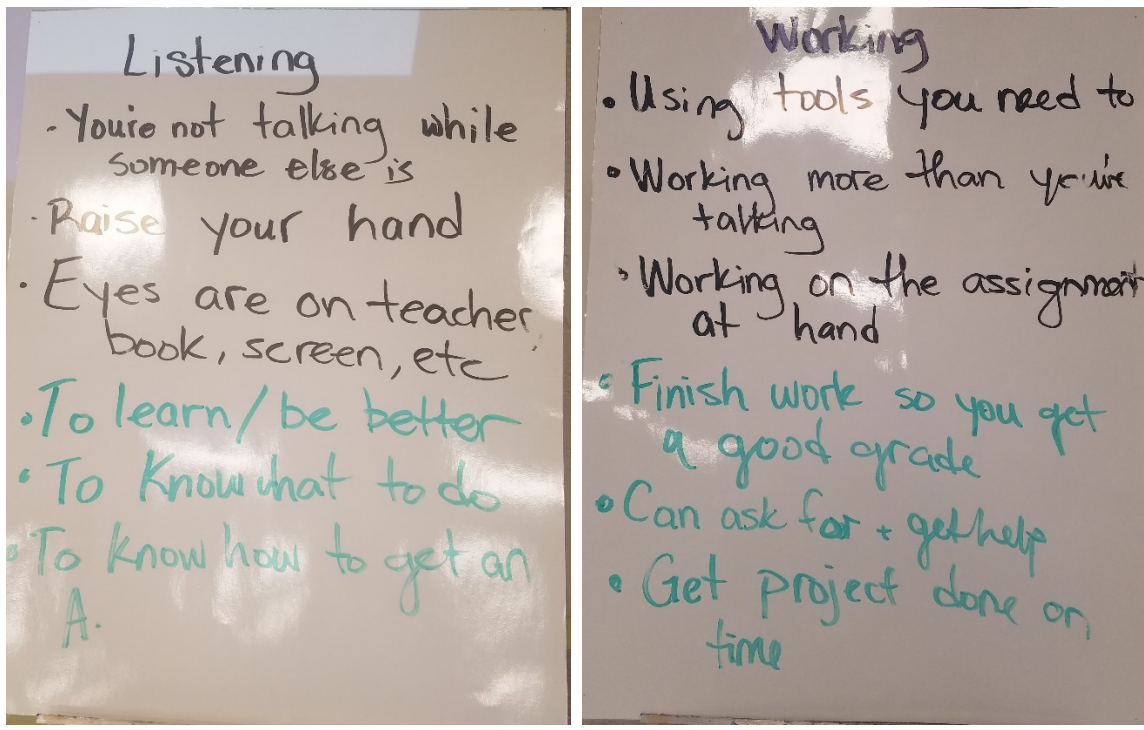 Listening
- You're not talking while
someone else is
· Raise your hand
· Eyes are on teacher,
book, screen, etc
• To learn/be better
• To know what to do
• To know how to get an
A.
Working
• Using tools you need to
• Working more than you're
talking
• Working on the assignment
at hand
• Finish work so you get
a good grade
• Can ask for + get help
• Get project done on
time